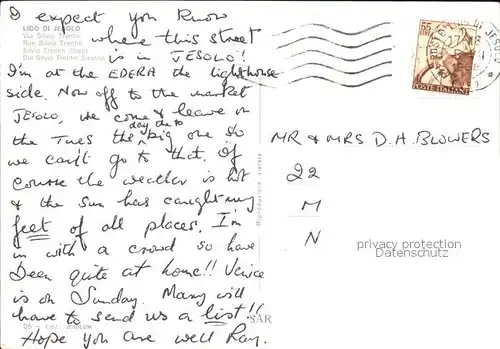 I expect you know
LIDO DI JESOLO
Via Silvio Trentin
Rue Silvio Trentin
Silvio Trentin Street
Die Silvio Trentin Strasse
where this street
is in JESOLO!
I'm at the EDERA the lighthouse
side. Now off to the market
JESOLO, we come & leave on
day the to
the Tues the big one so
we can't go to that. Of
course the weather is hot
& the sun has caught my
feet of all places. I'm
in with a crowd so have
been quite at home!! Venice
is on Sunday. Mary will
have to send us a list!!
Hope you are well Ray.
Riproduzione vietata
SAR
55
POSTE ITALIANE
MR & MRS D. H. BLOWERS
22
M
N
privacy protection
Datenschutz